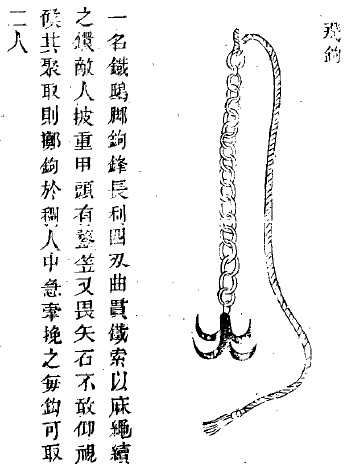 飛鉤
一名鐵鴟脚鉤鋒長利四刃曲貫鐵索以麻繩續
之慣敵人披重甲頭有鍪笠又畏矢石不敢仰視
候其聚取則擲鉤於稠人中急牽挽之每鉤可取
二人